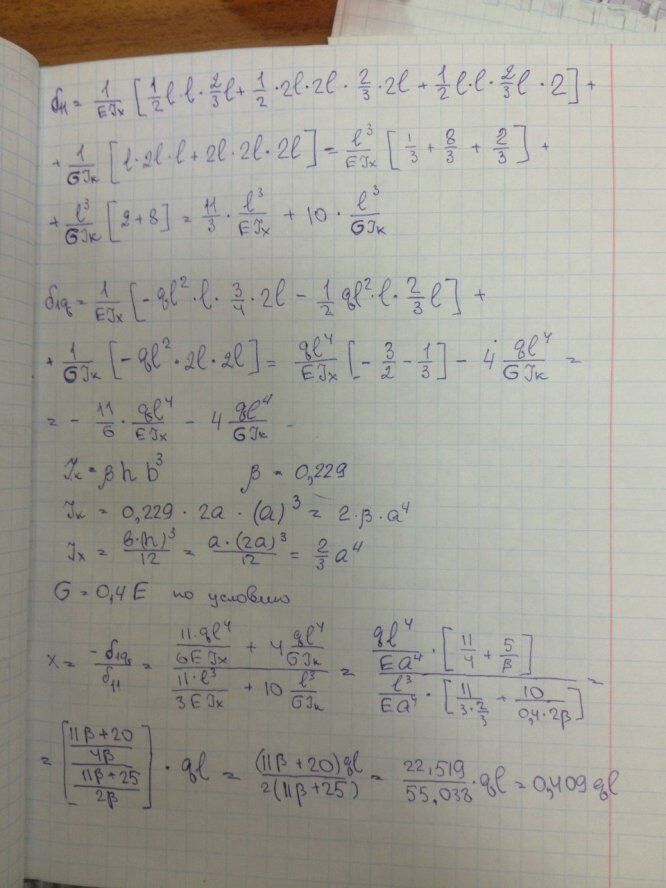 δ₁₁ = 1/EJx [1/2 l·l·2/3 l + 1/2·2l·2l·2/3·2l + 1/2 l·l·2/3 l·2] +
+ 1/GJк [l·2l·l + 2l·2l·2l] = l³/EJx [1/3 + 8/3 + 2/3] +
+ l³/GJк [2+8] = 11/3 · l³/EJx + 10 · l³/GJк
δ1q = 1/EJx [-ql²·l·3/4·2l - 1/2 ql²·l·2/3 l] +
+ 1/GJк [-ql²·2l·2l] = ql⁴/EJx [-3/2 - 1/3] - 4 ql⁴/GJк =
= - 11/6 · ql⁴/EJx - 4 ql⁴/GJк
Jк = β h b³ β = 0,229
Jк = 0,229 · 2a · (a)³ = 2·β·a⁴
Jx = b·(h)³/12 = a·(2a)³/12 = 2/3 a⁴
G = 0,4 E по условию
X = -δ1q/δ11 = (11·ql⁴/6EJx + 4 ql⁴/GJк)/(11·l³/3EJx + 10 l³/GJк) = (ql⁴/Ea⁴ · [11/4 + 5/β])/(l³/Ea⁴ · [11/(3·2/3) + 10/(0,4·2β)]) =
= [((11β+20)/4β)/((11β+25)/2β)] · ql = (11β+20)ql/2(11β+25) = 22,519/55,038 · ql = 0,409 ql